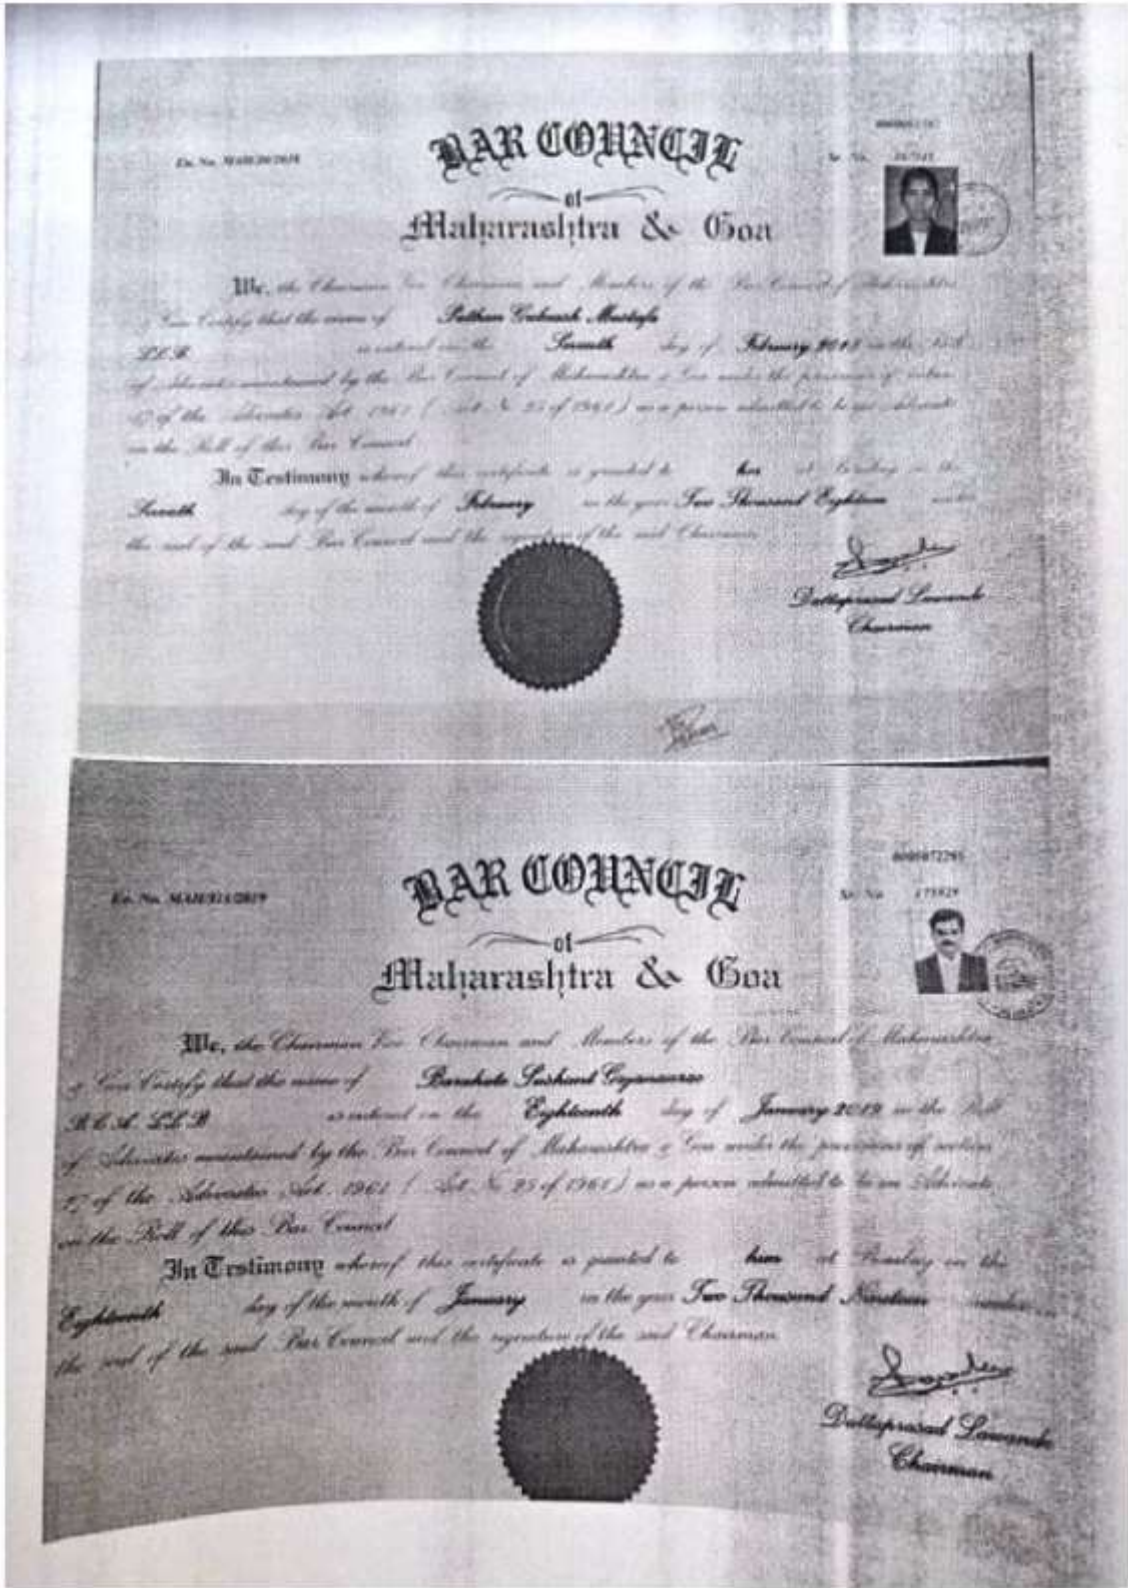 BAR COUNCIL
of
Maharashtra & Goa
We, the Chairman Vice Chairman and Members of the Bar Council of Maharashtra
& Goa Certify that the name of Pathan Mustafa
LL.B. is entered on the Seventh day of February 2018 in the Roll
of Advocates maintained by the Bar Council of Maharashtra & Goa under the provisions of section
17 of the Advocates Act. 1961 ( Act No 25 of 1961 ) as a person admitted to be an Advocate
on the Roll of this Bar Council
In Testimony whereof this certificate is granted to her at Bombay on the
Seventh day of the month of February in the year Two Thousand Eighteen under
the seal of the said Bar Council and the signature of the said Chairman
Dattaprasad Lawande
Chairman
Sr. No.
En. No.
BAR COUNCIL
of
Maharashtra & Goa
We, the Chairman Vice Chairman and Members of the Bar Council of Maharashtra
& Goa Certify that the name of Sushant Gajananrao
B.C.A. LL.B is entered on the Eighteenth day of January 2019 in the Roll
of Advocates maintained by the Bar Council of Maharashtra & Goa under the provisions of section
17 of the Advocates Act. 1961 ( Act No 25 of 1961 ) as a person admitted to be an Advocate
on the Roll of this Bar Council
In Testimony whereof this certificate is granted to him at Bombay on the
Eighteenth day of the month of January in the year Two Thousand Nineteen under
the seal of the said Bar Council and the signature of the said Chairman
Dattaprasad Lawande
Chairman